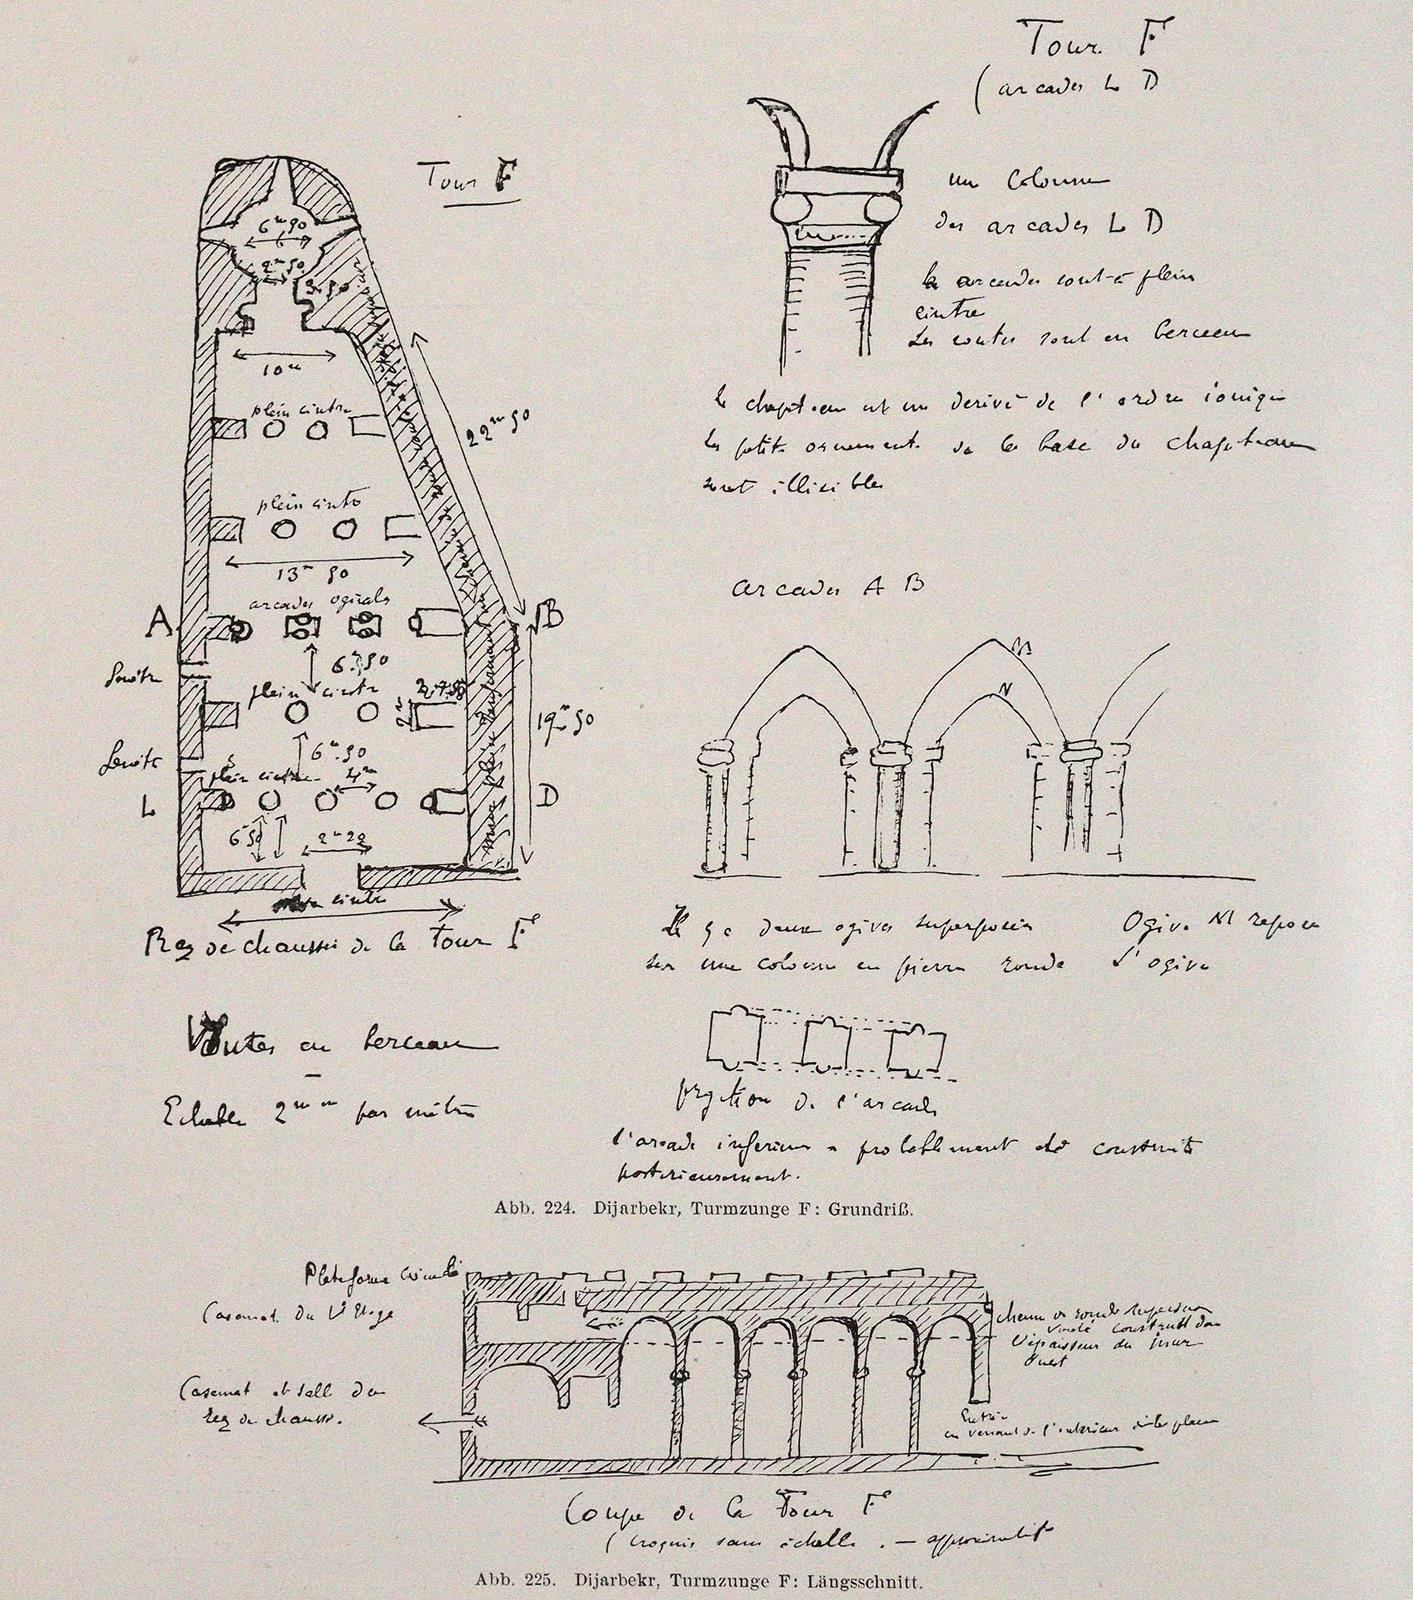 Tour F
(arcades L D
Tour F
une Colonne
des arcades L D
les arcades sont à plein
cintre
Les voutes sont en berceau
le chapiteau est un derivé de l'ordre ionique
les petits ornements de la base du chapiteau
sont illisibles
6m 50
2m 50
3.50
10m
plein cintre
22m 50
plein cintre
13m 50
arcades ogivales
A
B
6m 50
fenêtre
plein cintre
19m 50
fenêtre
6m 50
plein cintre
4m
L
D
6m 50
cintre
Rez de chaussée de la Tour F
Voutes en berceau
Echelle 2mm par mètre
arcades A B
M
N
Il y a deux ogives superposées
Ogive M repose
sur une colonne en pierre ronde
l'ogive
projection de l'arcade
l'arcade inferieure a probablement été construite
posterieurement.
Abb. 224. Dijarbekr, Turmzunge F: Grundriß.
Plateforme
Casemate du 1er Etage
chemin de ronde superieur
vouté construit dans
l'épaisseur du mur
Ouest
Casemate et salle du
rez de chaussée.
Entrée
en venant de l'interieur de la place
Coupe de la Tour F
(Croquis sans échelle. — approximatif
Abb. 225. Dijarbekr, Turmzunge F: Längsschnitt.